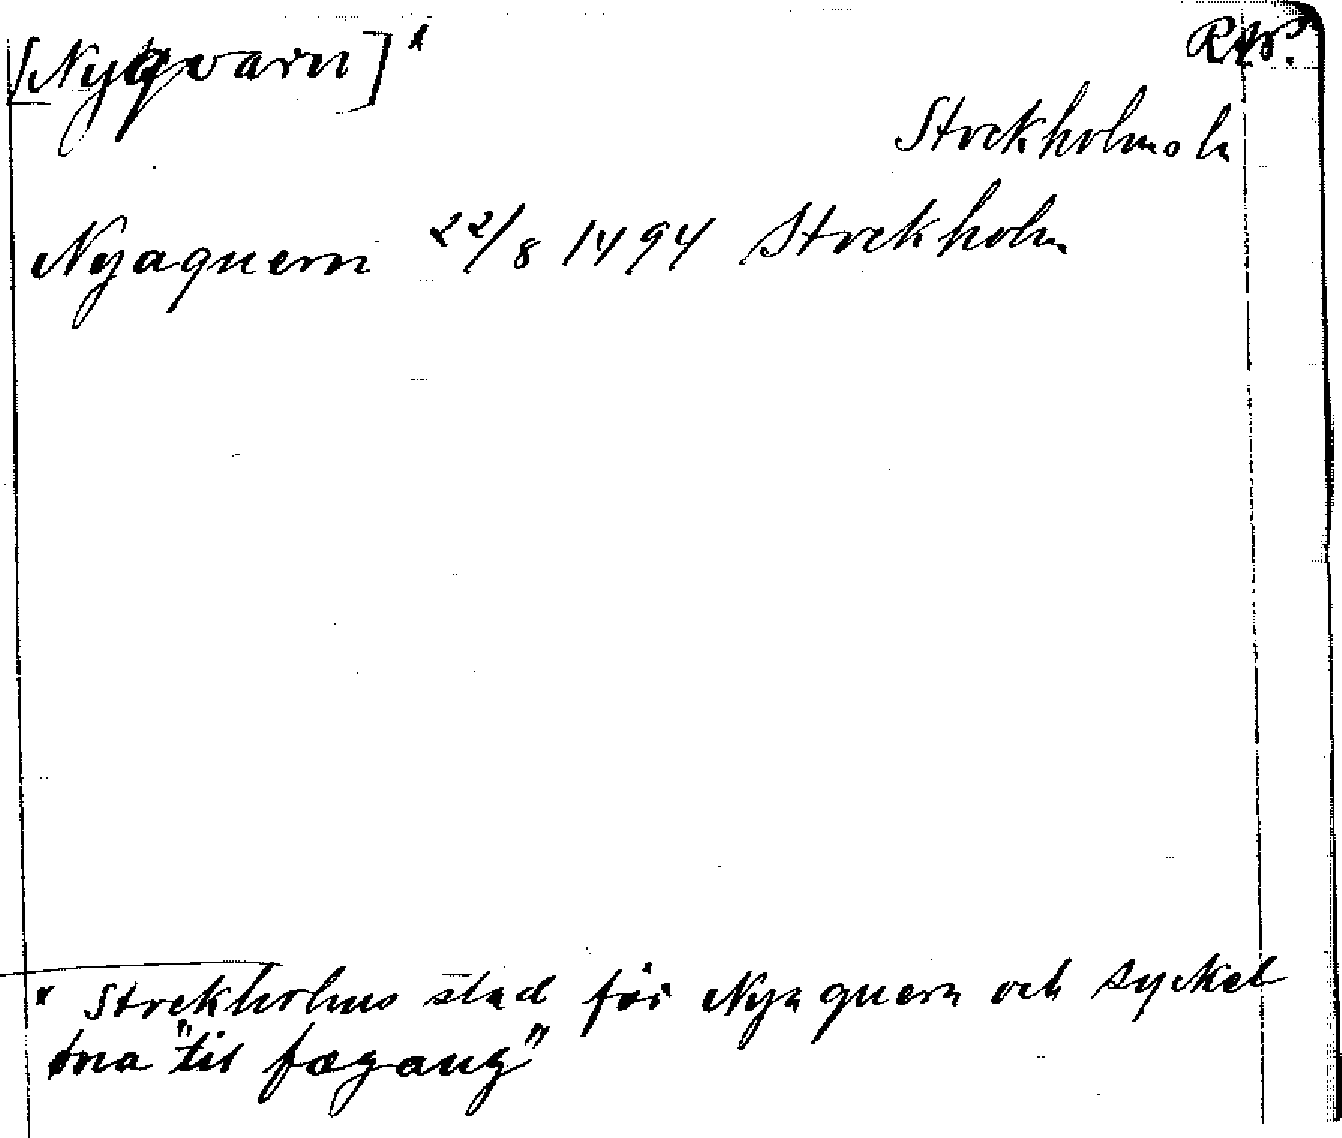 [Nyqvarn]¹
Stockholms l.
Nyaquern 22/8 1494 Stockholm
Stockholms stad får Nyaquern och syckel
öna "til fægang"